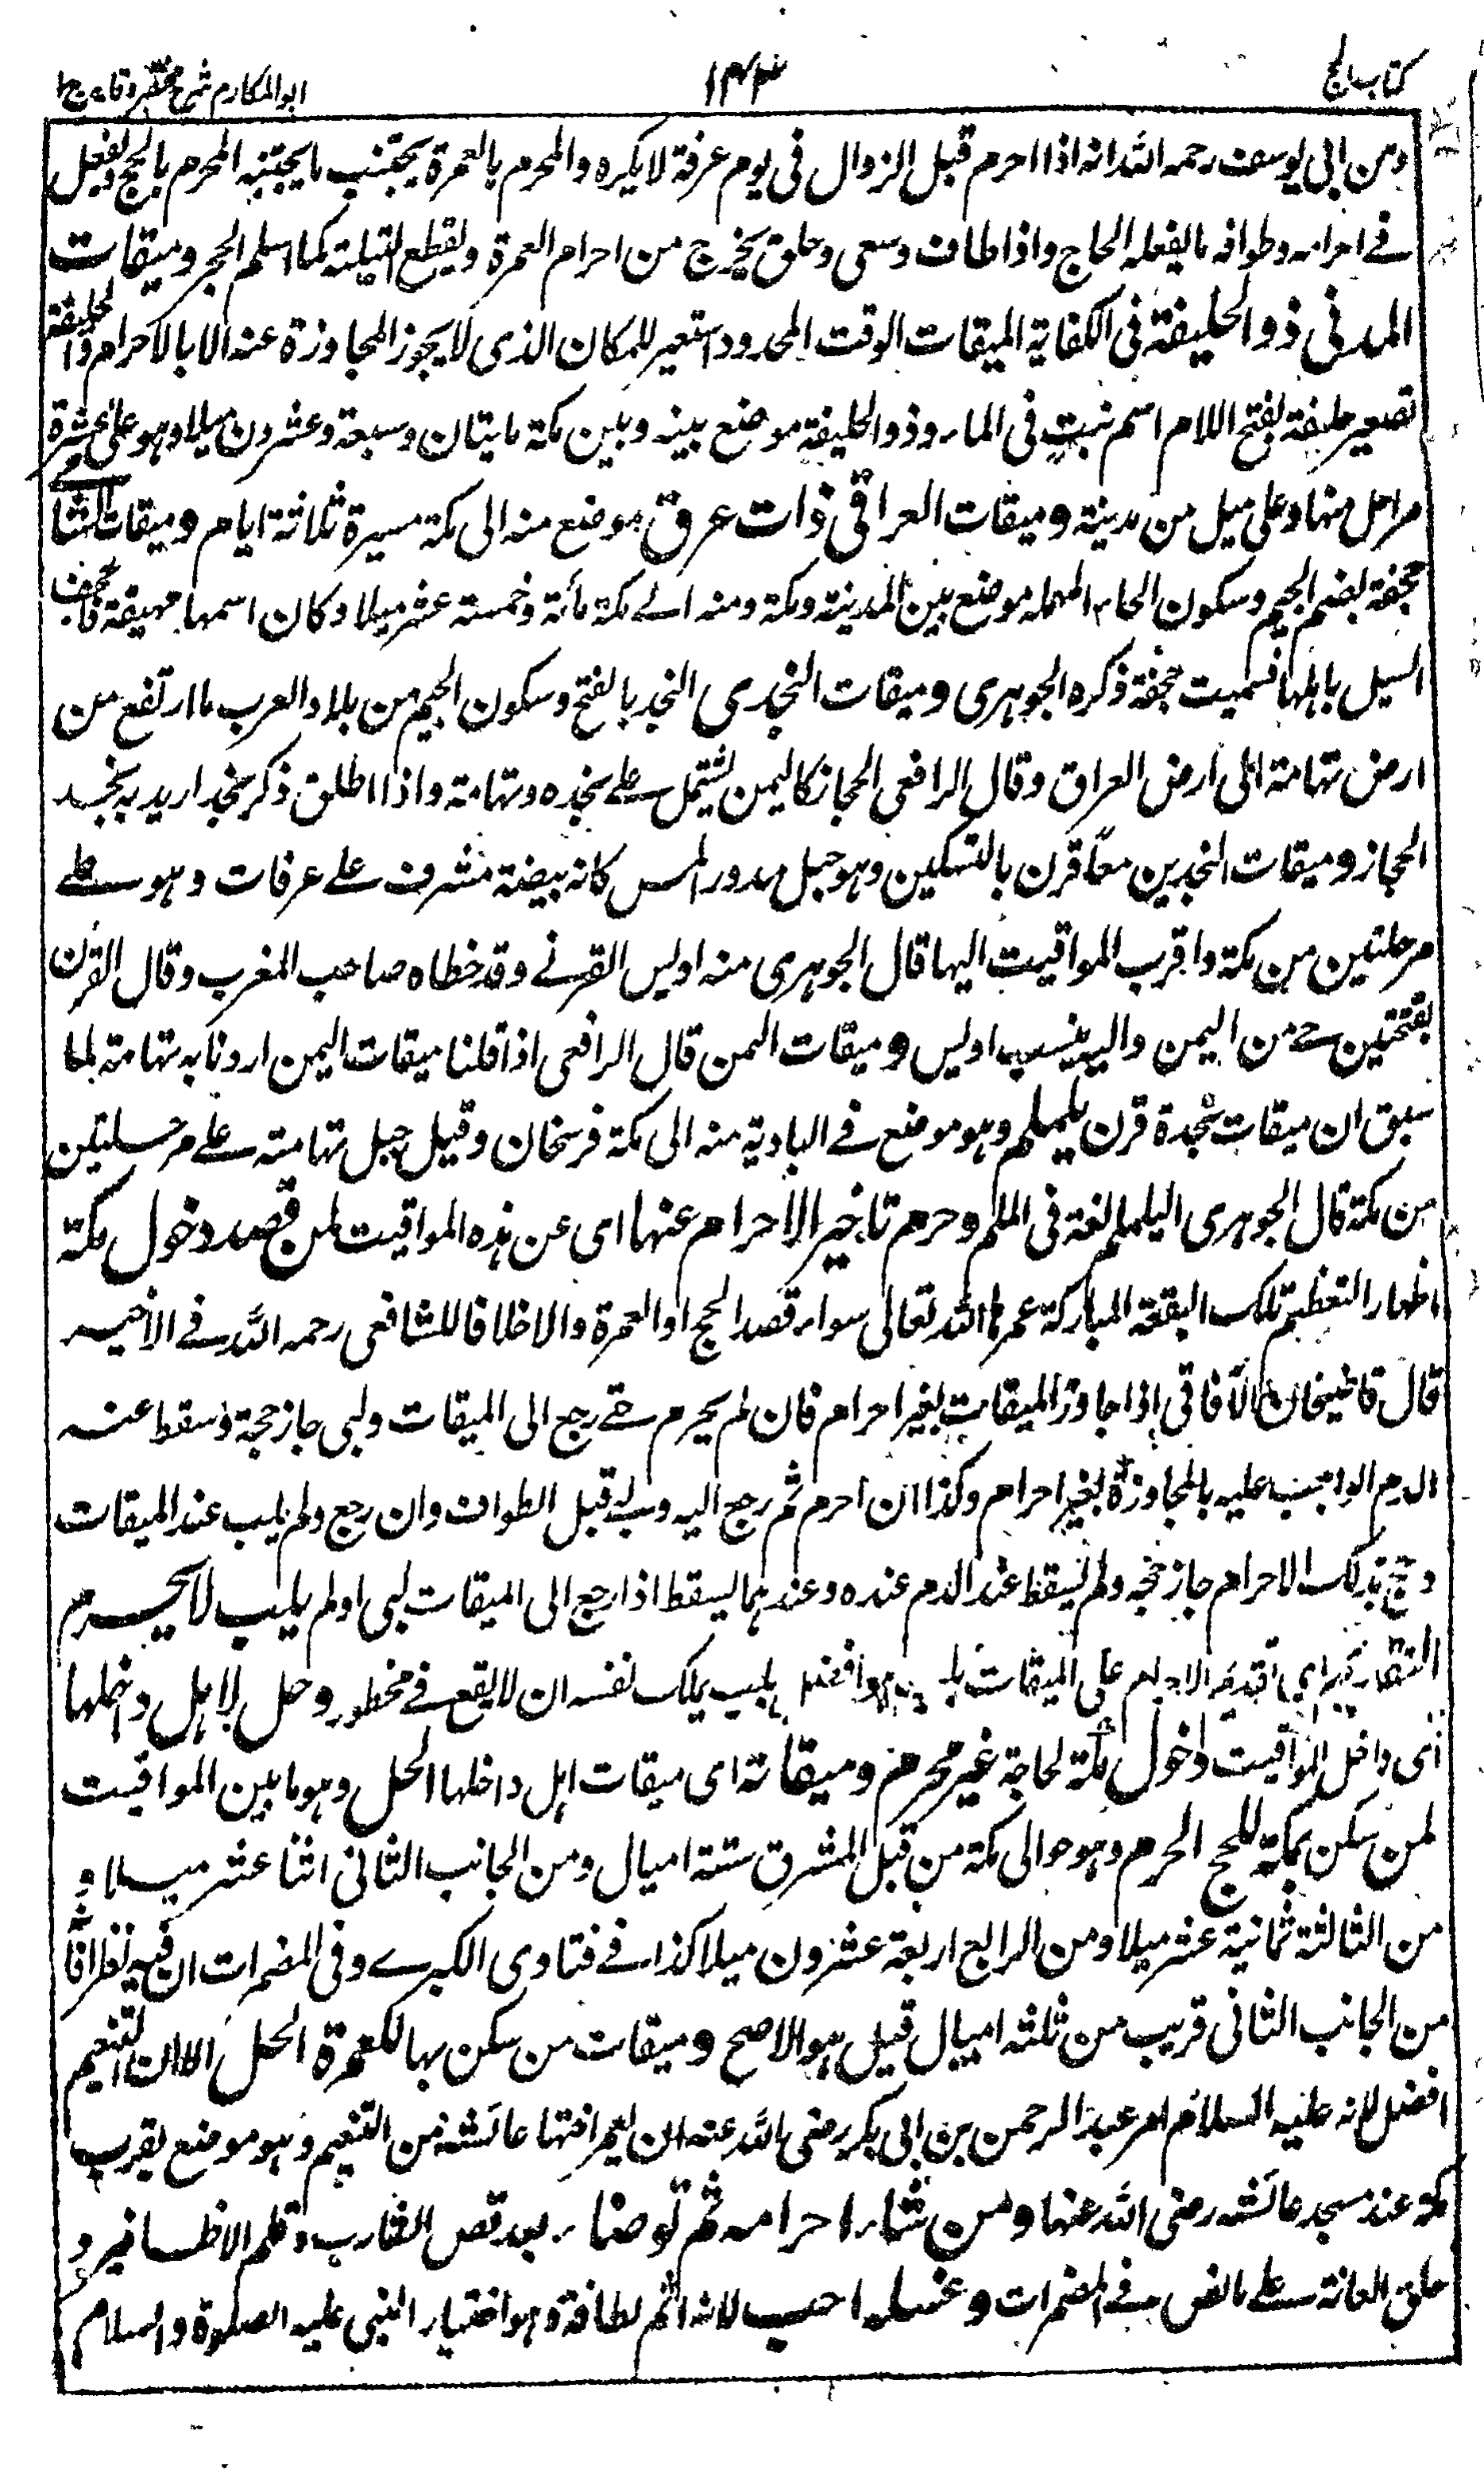 كتاب الحج
١٤٤
ابو المكارم شرح مختصر وقايه ج١
وعن ابى يوسف رحمه الله انه اذا احرم قبل الزوال فى يوم عرفة لا يكره والمحرم بالعمرة يجتنب ما يجتنبه المحرم بالحج ويفعل
فى احرامه وطوافه ما يفعله الحاج واذا طاف وسعى وحلق يخرج من احرام العمرة ويقطع التلبية كما استلم الحجر وميقات
المدنى ذو الحليفة فى الكفاية الميقات الوقت المحدود استعير للمكان الذى لا يجوز المجاوزة عنه الا بالاحرام والحليفة
تصغير حلفة بفتح اللام اسم نبت فى الماء وذو الحليفة موضع بينه وبين مكة مايتان وسبعة وعشرون ميلا وهو على عشرة
مراحل منها وعلى ميل من مدينة وميقات العراقى ذات عرق موضع منه الى مكة مسيرة ثلاثة ايام وميقات الشامى
جحفة بضم الجيم وسكون الحاء المهملة موضع بين المدينة ومكة ومنه الى مكة مائة وخمسة عشر ميلا وكان اسمها مهيعة فاجحف
السيل باهلها فسميت جحفة ذكره الجوهرى وميقات النجدى النجد بالفتح وسكون الجيم من بلاد العرب ما ارتفع من
ارض تهامة الى ارض العراق وقال الرافعى الحجاز كاليمن يشتمل على نجده وتهامة واذا اطلق ذكر نجد اريد به نجد
الحجاز وميقات النجدين معًا قرن بالتسكين وهو جبل مدور املس كانه بيضة مشرف على عرفات وهو على
مرحلتين من مكة واقرب المواقيت اليها قال الجوهرى منه اويس القرنى وقد خطاه صاحب المغرب وقال القرن
بفتحتين حى من اليمن واليه ينسب اويس وميقات اليمن قال الرافعى اذا قلنا ميقات اليمن اردنا به تهامة لما
سبق ان ميقات نجدة قرن يلملم وهو موضع فى البادية منه الى مكة فرسخان وقيل جبل تهامة على مرحلتين
من مكة قال الجوهرى اليلملم لغة فى الملم وحرم تاخير الاحرام عنها اى عن هذه المواقيت لمن قصد دخول مكة
اظهار التعظيم تلك البقعة المباركة عمرها الله تعالى سواء قصد الحج او العمرة والا خلافا للشافعى رحمه الله فى الاخير
قال قاضيخان الآفاقى اذا جاوز الميقات بغير احرام فان لم يحرم حتى رجع الى الميقات ولبى جاز حجة وسقط عنه
الدم الواجب عليه بالمجاوزة بغير احرام وكذا ان احرم ثم رجع اليه ولبى قبل الطواف وان رجع ولم يلب عند الميقات
وحج بذلك الاحرام جاز حجه ولم يسقط عند الدم عنده وعندهما يسقط اذا رجع الى الميقات لبى او لم يلب لا يحرم
التقديم اى تقديم الاحرام على الميقات بل هو افضل يملك نفسه ان لا يقع فى محظور وحل لاهل داخلها
اى داخل المواقيت دخول مكة لحاجة غير محرم وميقاته اى ميقات اهل داخلها الحل وهو ما بين المواقيت
لمن سكن بمكة للحج الحرم وهو حوالى مكة من قبل المشرق ستة اميال ومن الجانب الثانى اثنا عشر ميلا و
من الثالثة ثمانية عشر ميلا ومن الرابع اربعة عشرون ميلا كذا فى فتاوى الكبرى وفى المضمرات ان فيه نظرا فان
من الجانب الثانى قريب من ثلثه اميال قيل هو الاصح وميقات من سكن بها للعمرة الحل الا ان التنعيم
افضل لانه عليه السلام امر عبد الرحمن بن ابى بكر رضى الله عنه ان يعمر اختها عائشة من التنعيم وهو موضع بقرب
مكة عند مسجد عائشه رضى الله عنها ومن شاء احرامه ثم توضاء بعد قص الشارب وقلم الاظافير و
حلق العانة على ما نص فى المضمرات وغسله احب لانه اتم لطافة وهو اختيار النبى عليه الصلوة والسلام